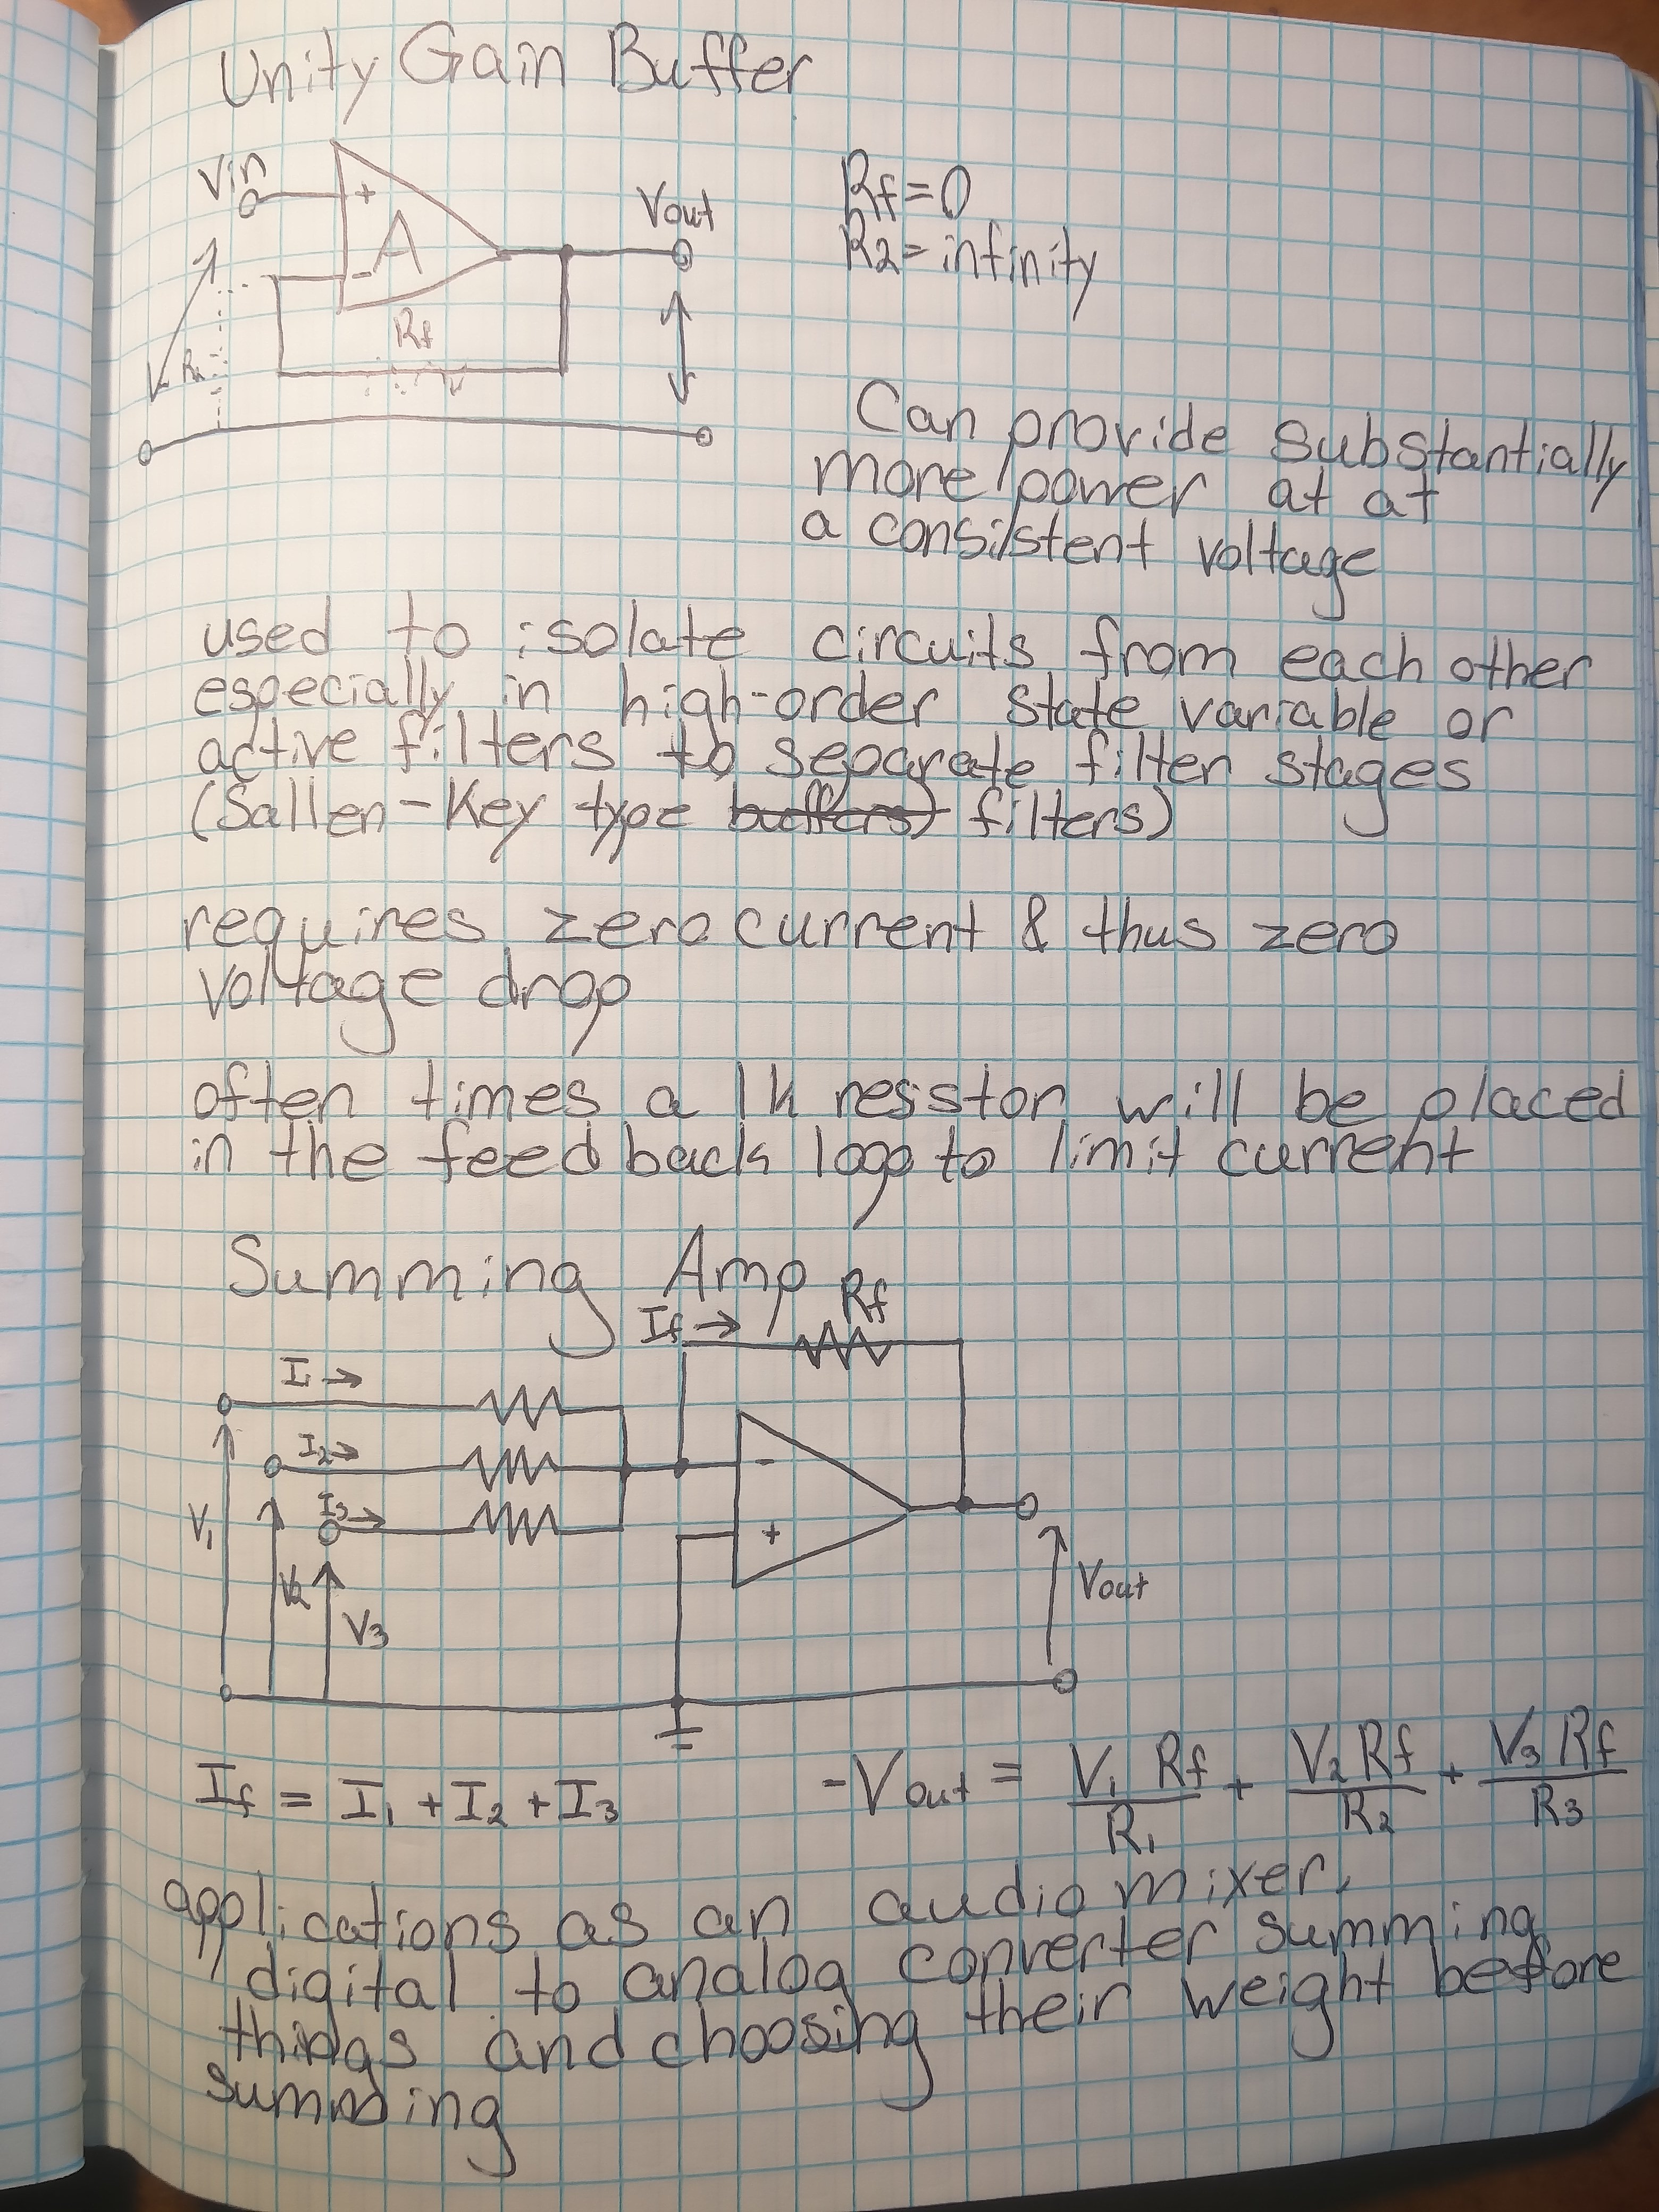 Unity Gain Buffer
Vin
+
A
-
Vout
Rf
Rf=0
R2=infinity
Can provide substantially
more power at at
a consistent voltage
used to isolate circuits from each other
especially in high-order state variable or
active filters to separate filter stages
(Sallen-Key type buffers) filters)
requires zero current & thus zero
voltage drop
often times a 1k resistor will be placed
in the feedback loop to limit current
Summing Amp
If→ Rf
I1→
I2→
I3→
-
+
V1
V2
V3
Vout
If = I1 + I2 + I3
-Vout = V1 Rf/R1 + V2 Rf/R2 + V3 Rf/R3
applications as an audio mixer,
digital to analog converter summing
things and choosing their weight before
summing